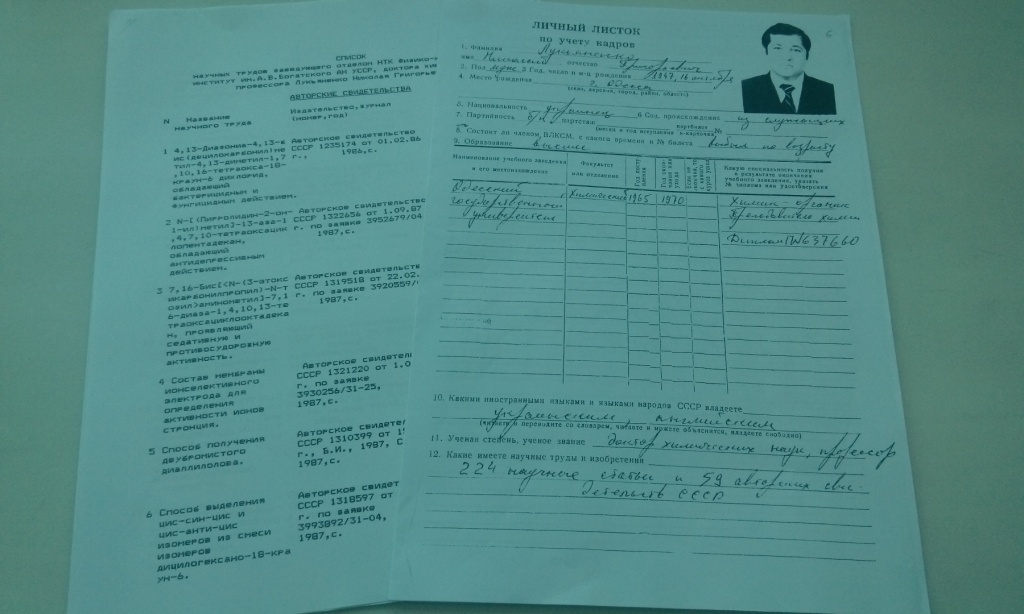 СПИСОК
научных трудов заведующего отделом НТК Физико-х
институт им.А.В.Богатского АН УССР, доктора хи
профессора Лукьяненко Николая Григорье
АВТОРСКИЕ СВИДЕТЕЛЬСТВА
N Название Издательство,журнал
научного труда (номер,год)
1 4,13-Диазониа-4,13-б Авторское свидетельство
ис(децилокарбонил)ме СССР 1235174 от 01.02.86
тил-4,13-диметил-1,7 г., 1986,с.
,10,16-тетраокса-18-
краун-6 дихлорид,
обладающий
бактерицидным и
фунгицидным действием.
2 N-[(Пирролидин-2-он- Авторское свидетельство
1-ил)метил]-13-аза-1 СССР 1322656 от 1.09.87
,4,7,10-тетраоксацик г. по заявке 3952679/04
лопентадекан, 1987,с.
обладающий
антидепрессивным
действием.
3 7,16-Бис[<N-(3-этокс Авторское свидетельств
икарбонилпропил)-N-т СССР 1319518 от 22.02.
озил>аминометил]-7,1 г. по заявке 3920559/
6-диаза-1,4,10,13-те 1987,с.
траоксациклооктадека
н, проявляющий
седативную и
противосудорожную
активность.
4 Состав мембраны Авторское свидетел
ионселективного СССР 1321220 от 1.0
электрода для г. по заявке
определения 3930256/31-25,
активности ионов 1987,с.
стронция.
5 Способ получения Авторское свидете
двубромистого СССР 1310399 от 1
диаллилолова. г., Б.И., 1987, С
6 Способ выделения Авторское свидет
цис-син-цис и СССР 1318597 от
цис-анти-цис г. по заявке
изомеров из смеси 3993892/31-04,
изомеров 1987,с.
дициклогексано-18-кра
ун-6.
6
ЛИЧНЫЙ ЛИСТОК
по учету кадров
1. Фамилия Лукьяненко
имя Николай отчество Григорович
2. Пол муж 3. Год, число и м-ц рождения 1947, 16 октября
4. Место рождения г. Одесса
(село, деревня, город, район, область)
5. Национальность украинец 6. Соц. происхождение из служащих
7. Партийность б/п партстаж партбилет №
(месяц и год вступления) и карточка
8. Состоит ли членом ВЛКСМ, с какого времени и № билета выбыл по возрасту
9. Образование высшее
Наименование учебного заведения и его местонахождение
Факультет или отделение
Год поступления
Какую специальность получил в результате окончания учебного заведения, указать № диплома или удостоверения
Одесский государственный университет
Химический 1965 1970
Химик-органик
Преподаватель химии
Диплом № 637660
10. Какими иностранными языками и языками народов СССР владеете
украинским английским
(читаете и переводите со словарем, читаете и можете объясняться, владеете свободно)
11. Ученая степень, ученое звание доктор химических наук, профессор
12. Какие имеете научные труды и изобретения
224 научные статьи и 59 авторских сви-
детельств СССР